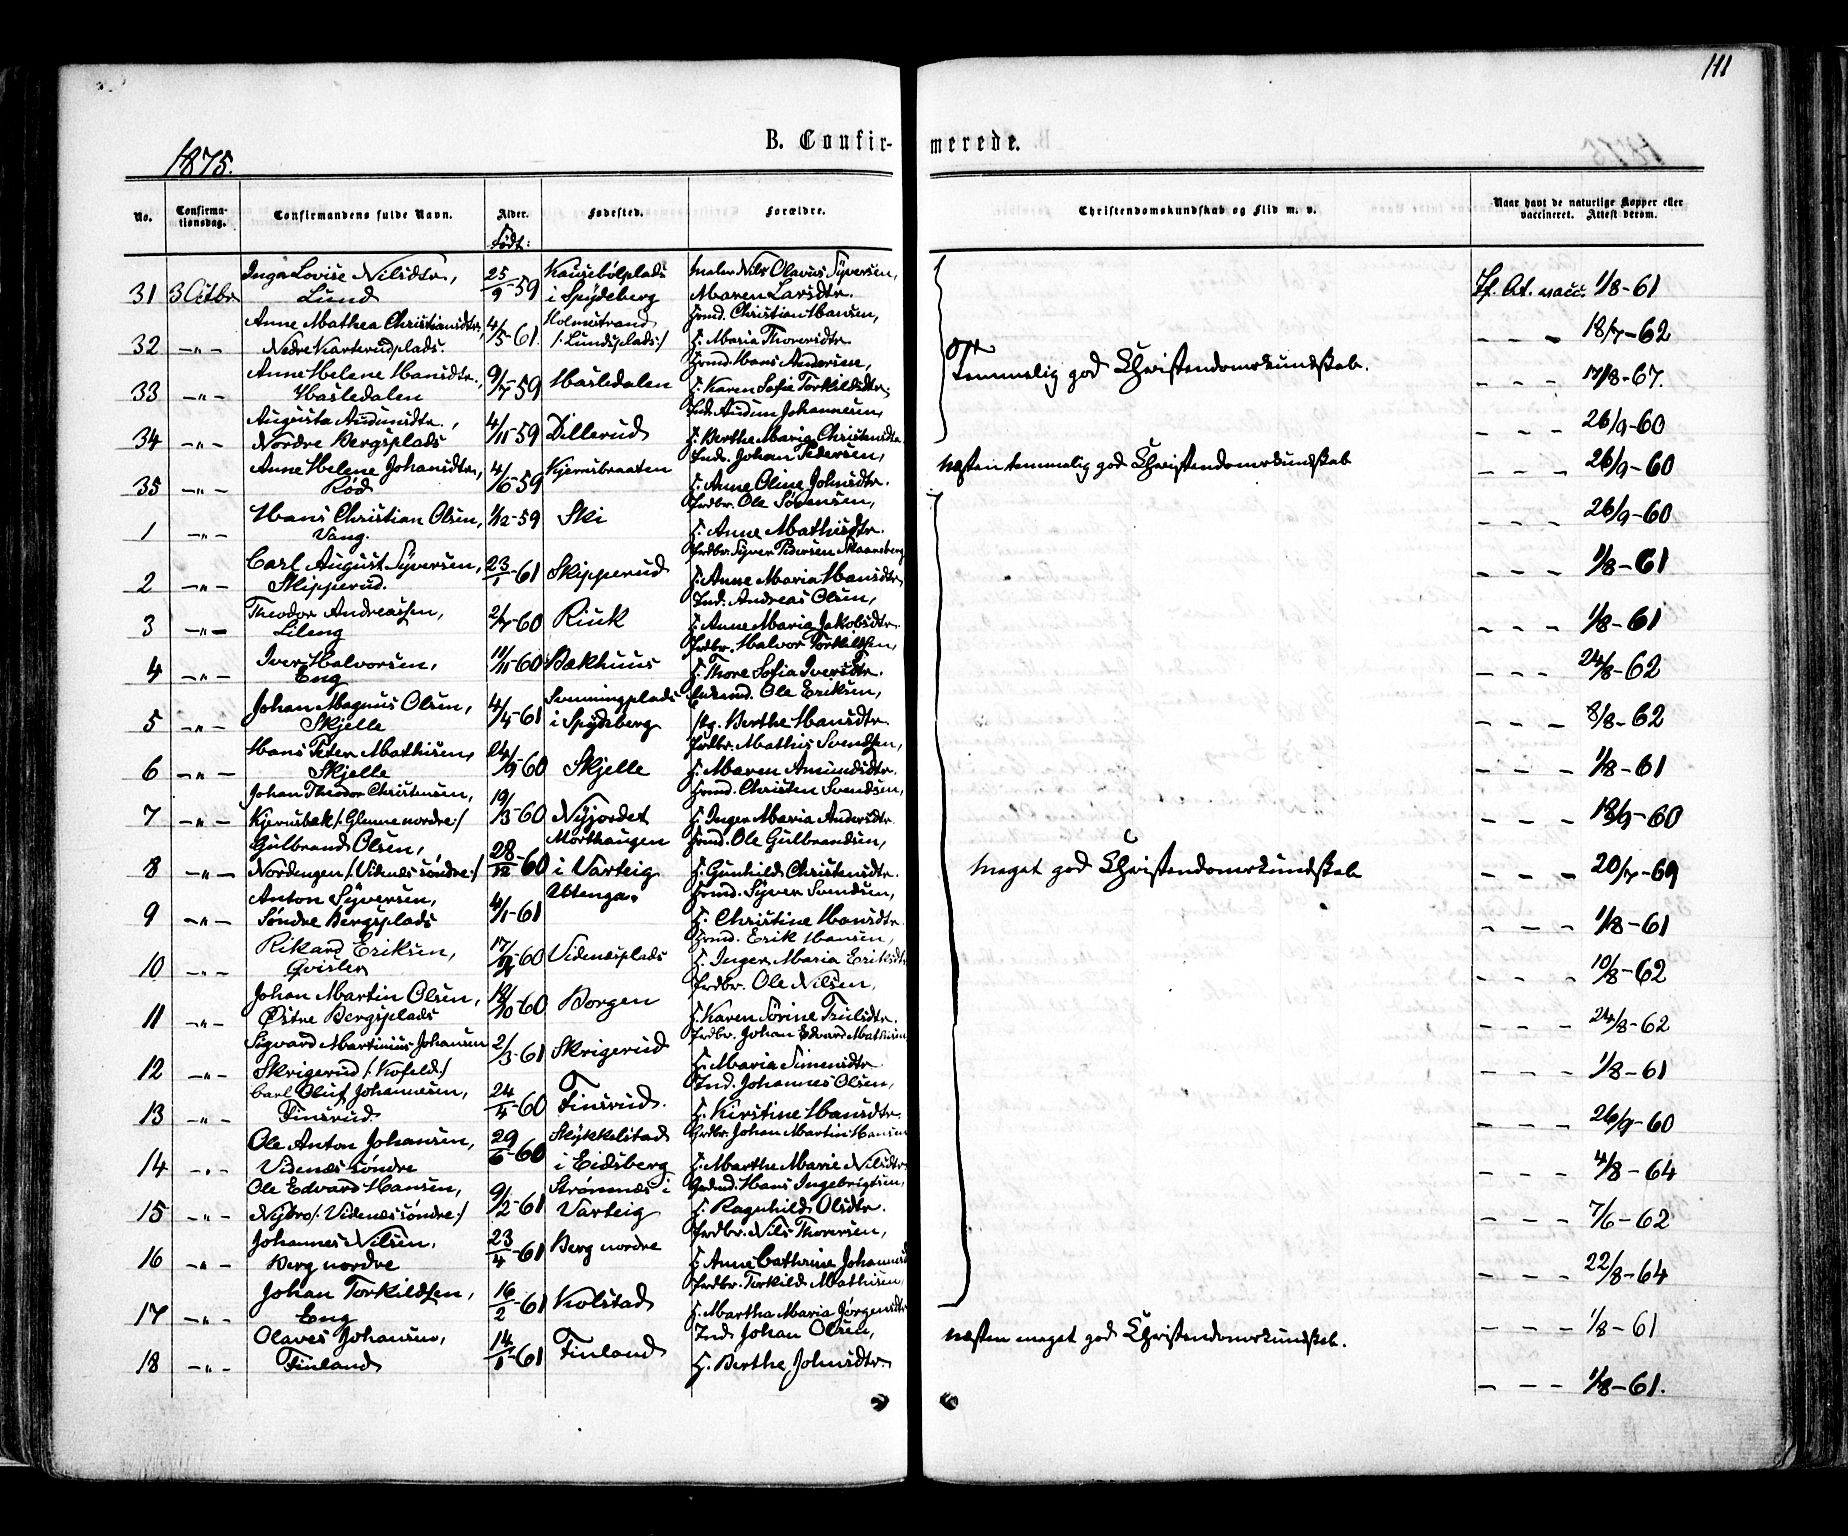 111
1875.
B. Confir-
merede.
No.
Confirma-
tionsdag.
Confirmandens fulde Navn.
Alder.
Født:
Fødested.
Forældre.
Christendomskundskab og Flid m. v.
Naar havt de naturlige Kopper eller
vaccineret. Attest derom.
Inga Lovise Nilsdtr, 25/9-59 Nils Olavus Syversen,
31 3 Octbr Lund i Spydeberg Maren Larsdtr. If. At. vacc. 1/8-61
Anne Mathea Christiansdtr, 4/5-61 Holmstrand Christian Hansen,
32 -"- Nedre Karterudplads. /:Lundsplads:/ Maria Thoresdtr. - - - 18/7-62
Anne Helene Hansdtr., 9/7-59 Hasledalen Hans Andersen,
33 -"- Hasledalen Karen Sofia Torkildsdtr. Temmelig god Christendomskundskab. - - - 17/8-67.
Augusta Audunsdtr., 4/11-59 Dillerud Ind. Audun Johannesen,
34 -"- Nordre Bergsplads Berthe Maria Christensdtr. - - - 26/9-60
Anne Helene Johansdtr, 4/6-59 Kjernsbraaten Ind. Johan Pedersen,
35 -"- Rød Anne Oline Johnsdtr. næsten temmelig god Christendomskundskab - - - 26/9-60
Hans Christian Olsen, 1/12-59 Ski Grdbr. Ole Sørensen,
1 -"- Vang. Anne Mathisdtr. - - - 26/9-60
Carl August Syversen, 23/1-61 Skipperud Grdbr. Syver Pedersen Skaansberg
2 -"- Skipperud. Anne Maria Hansdtr, - - - 1/8-61
Theodor Andreassen, 2/7-60 Riuk Ind. Andreas Olsen,
3 -"- Lileng Anne Maria Jakobsdtr. - - - 1/8-61
Iver Halvorsen, 11/11-60 Bækhuus Grdbr. Halvor Torkildsen,
4 -"- Eng Thore Sofia Iversdtr. - - - 24/8-62
Johan Magnus Olsen, 4/4-61 Svenningplads Ole Eriksen,
5 -"- Skjelle i Spydeberg Berthe Hansdtr. - - - 8/8-62
Hans Peter Mathisen, 24/9-60 Skjelle Grdbr. Mathis Svendsen,
6 -"- Skjelle Maren Amundsdtr. - - - 1/8-61
Johan Theodor Christensen, 19/3-60 Nyjordet Christen Svendsen,
7 -"- Kjernsbæk /:Glenne nordre:/ Inger Maria Andersdtr. - - - 18/9-60
Gulbrand Olsen, 28/12-60 Morthaugen Ole Gulbrandsen,
8 -"- Nordengen /:Videnæs søndre:/ i Varteig Gunhild Christensdtr. Meget god Christendomskundskab - - - 20/7-69
Anton Syversen, 4/1-61 Uttenga. Syver Svendsen,
9 -"- Søndre Bergsplads Christine Hansdtr. - - - 1/8-61
Rikard Eriksen, 60 Videnæsplads Erik Hansen,
10 -"- Gvisler Inger Maria Eriksdtr. - - - 10/8-62
Johan Martin Olsen, 18/10-60 Borgen Grdbr. Ole Nilsen,
11 -"- Østre Bergsplads Karen Sørine Trulsdtr. - - - 24/8-62
Sigvard Martinius Johansen 2/3-61 Skrigerud Grdbr. Johan Edvard Mathisen
12 -"- Skrigerud /:Kofeld:/ Maria Simensdtr. - - - 1/8-61
Carl Oluf Johannesen, 24/4-60 Finsrud. Ind. Johannes Olsen,
13 -"- Finsrud. Kirstine Hansdtr. - - - 26/9-60
Ole Anton Johansen, 29/6-60 Skykkelstad Grdbr. Johan Martin Hansen
14 -"- Videnæs søndre i Eidsberg Marthe Marie Nilsdtr. - - - 4/8-64
Ole Edvard Hansen, 9/2-61 Strømnæs i Hans Ingebrigtsen,
15 -"- Nybro /:Videnæs søndre:/ Varteig Ragnhild Olsdtr. - - - 7/6-62
Johannes Nilsen, 23/4-61 Berg nordre Grdbr. Nils Thoresen,
16 -"- Berg nordre Anne Cathrine Johannesd - - - 22/8-64
Johan Torkildsen, 16/2-61 Kolstad Grdbr. Torkild Mathisen
17 -"- Eng Martha Maria Jørgensdtr - - - 1/8-61
Olaves Johansen, 14/1-61 Finland Ind. Johan Olsen,
18 -"- Finland Berthe Johnsdtr. næsten meget god Christendomskundskab. - - - 1/8-61.